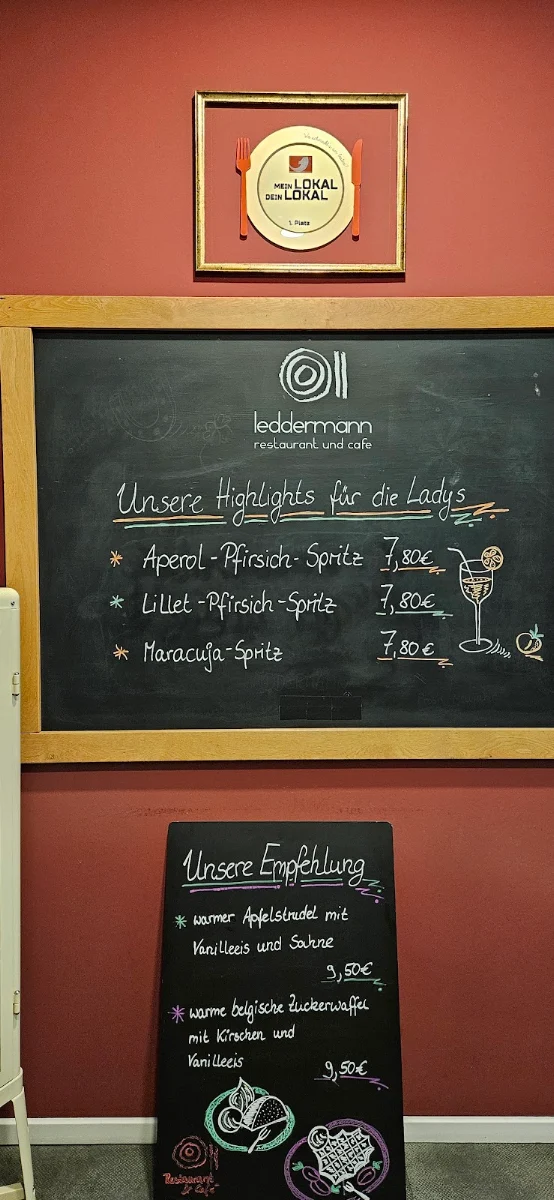 MEIN LOKAL
DEIN LOKAL
1. Platz
leddermann
restaurant und cafe
Unsere Highlights für die Ladys
* Aperol-Pfirsich-Spritz 7,80€
* Lillet-Pfirsich-Spritz 7,80€
* Maracuja-Spritz 7,80€
Unsere Empfehlung
* warmer Apfelstrudel mit
Vanilleeis und Sahne
9,50€
* warme belgische Zuckerwaffel
mit Kirschen und
Vanilleeis
9,50€
Restaurant
& Cafe